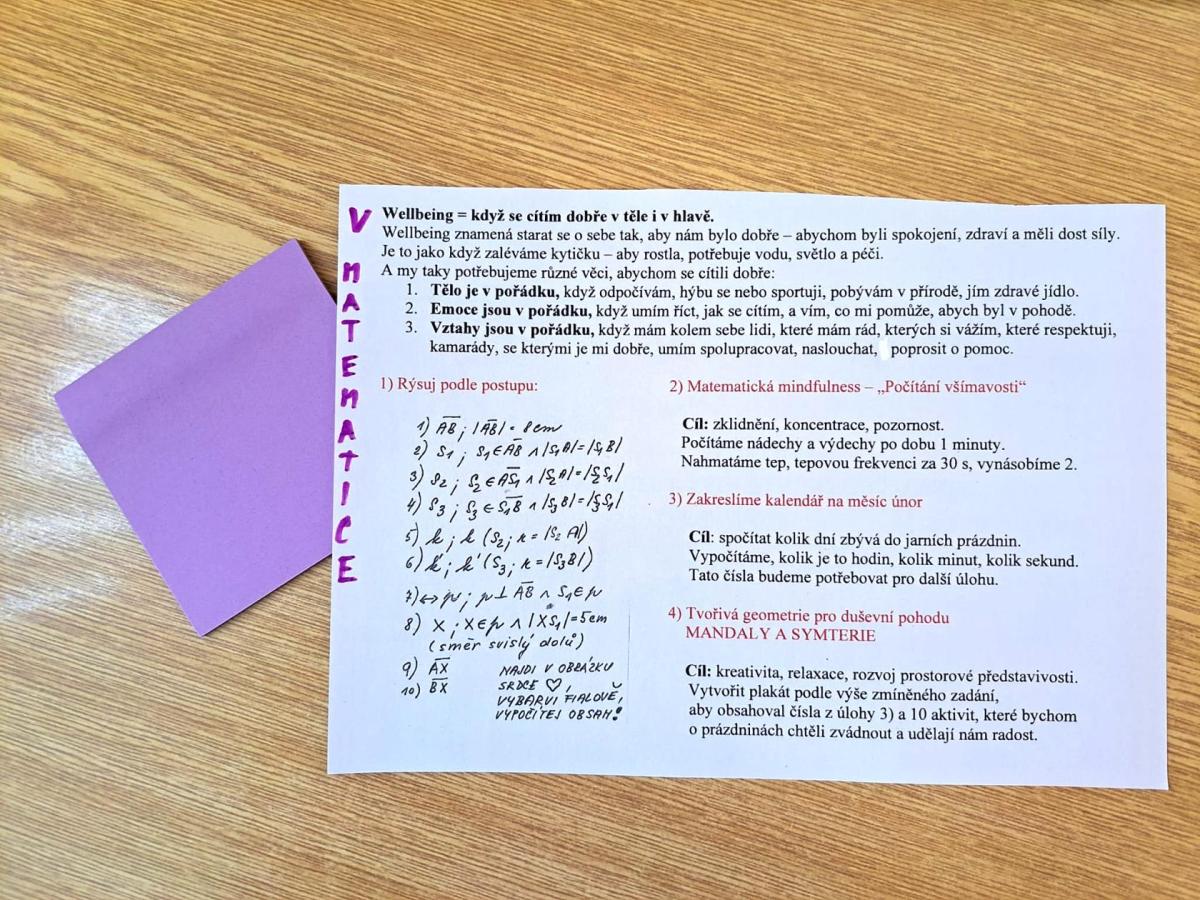 V MATEMATICE
Wellbeing = když se cítím dobře v těle i v hlavě.
Wellbeing znamená starat se o sebe tak, aby nám bylo dobře – abychom byli spokojení, zdraví a měli dost síly.
Je to jako když zaléváme kytičku – aby rostla, potřebuje vodu, světlo a péči.
A my taky potřebujeme různé věci, abychom se cítili dobře:
1. Tělo je v pořádku, když odpočívám, hýbu se nebo sportuji, pobývám v přírodě, jím zdravé jídlo.
2. Emoce jsou v pořádku, když umím říct, jak se cítím, a vím, co mi pomůže, abych byl v pohodě.
3. Vztahy jsou v pořádku, když mám kolem sebe lidi, které mám rád, kterých si vážím, které respektuji,
kamarády, se kterými je mi dobře, umím spolupracovat, naslouchat, poprosit o pomoc.
1) Rýsuj podle postupu:
1) A̅B̅; |A̅B̅| = 8cm
2) S₁; S₁∈A̅B̅ ∧ |S₁A|=|S₁B|
3) S₂; S₂∈A̅S̅₁ ∧ |S₂A|=|S₂S₁|
4) S₃; S₃∈S̅₁B̅ ∧ |S₃B|=|S₃S₁|
5) k; k (S₂; r = |S₂A|)
6) k'; k' (S₃; r = |S₃B|)
7) ↔ p; p⊥A̅B̅ ∧ S₁∈p
8) X; X∈p ∧ |XS₁|=5cm
(směr svislý dolů)
9) A̅X̅
10) B̅X̅
NAJDI V OBRÁZKU
SRDCE ♡,
VYBARVI FIALOVĚ,
VYPOČÍTEJ OBSAH!
2) Matematická mindfulness – „Počítání všímavosti“
Cíl: zklidnění, koncentrace, pozornost.
Počítáme nádechy a výdechy po dobu 1 minuty.
Nahmatáme tep, tepovou frekvenci za 30 s, vynásobíme 2.
3) Zakreslíme kalendář na měsíc únor
Cíl: spočítat kolik dní zbývá do jarních prázdnin.
Vypočítáme, kolik je to hodin, kolik minut, kolik sekund.
Tato čísla budeme potřebovat pro další úlohu.
4) Tvořivá geometrie pro duševní pohodu
MANDALY A SYMTERIE
Cíl: kreativita, relaxace, rozvoj prostorové představivosti.
Vytvořit plakát podle výše zmíněného zadání,
aby obsahoval čísla z úlohy 3) a 10 aktivit, které bychom
o prázdninách chtěli zvádnout a udělají nám radost.